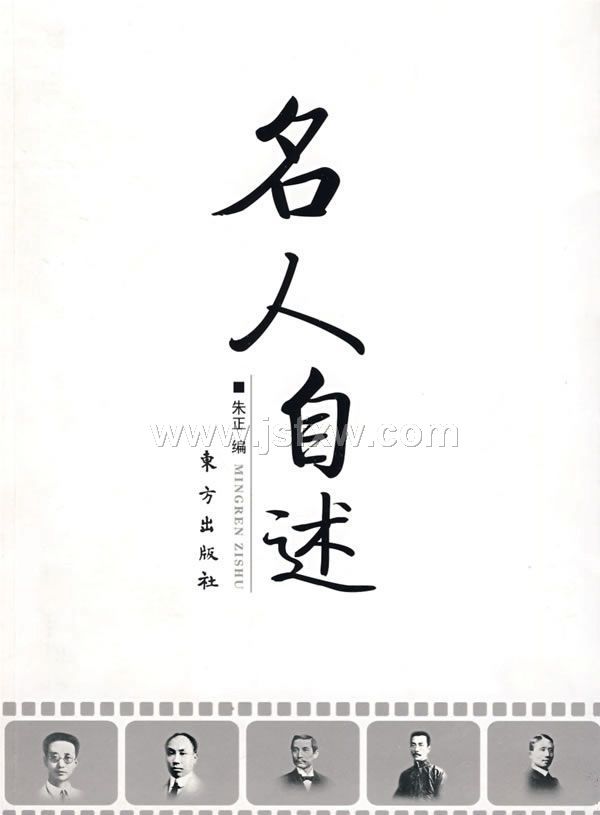 名人自述
■朱正 编
MINGREN ZISHU
東方出版社
www.jsfxw.com